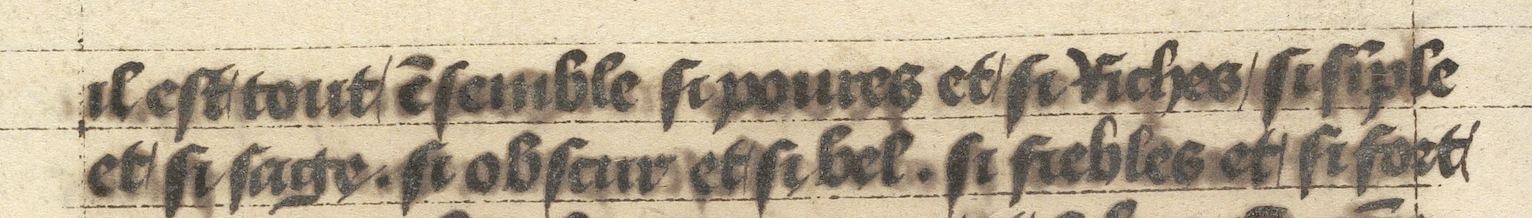 il est tout ẽsemble si poures et si riches / si sĩple
et si sage . si obscur et si bel . si fiebles et si fort